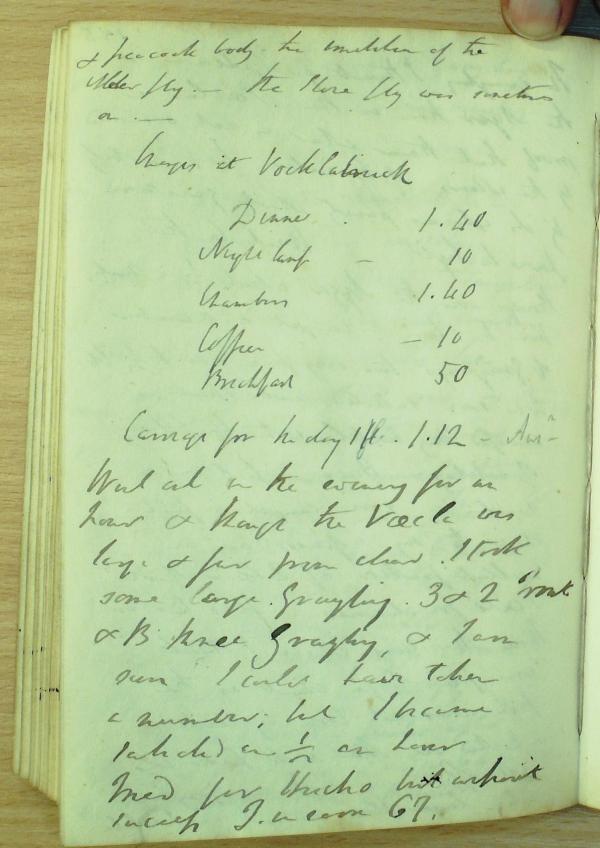 & peacock body the imitation of the
Alder fly. — the stone fly was sometimes
on. —
Charges at Vocklabruck
Dinner . 1.40
Night lamp — 10
Chambers 1.40
Coffee — 10
Breakfast 50
Carriage for the day 1fl. 1.12 —
Went out in the evening for an
hour & though the Vöcla was
large & far from clear. I took
some large Grayling. 3 & 2 Trout
& B three Grayling, & I am
sure I could have taken
a number; but I became
in ½ an hour
Tried for Hucho but without
success T. in room 67.